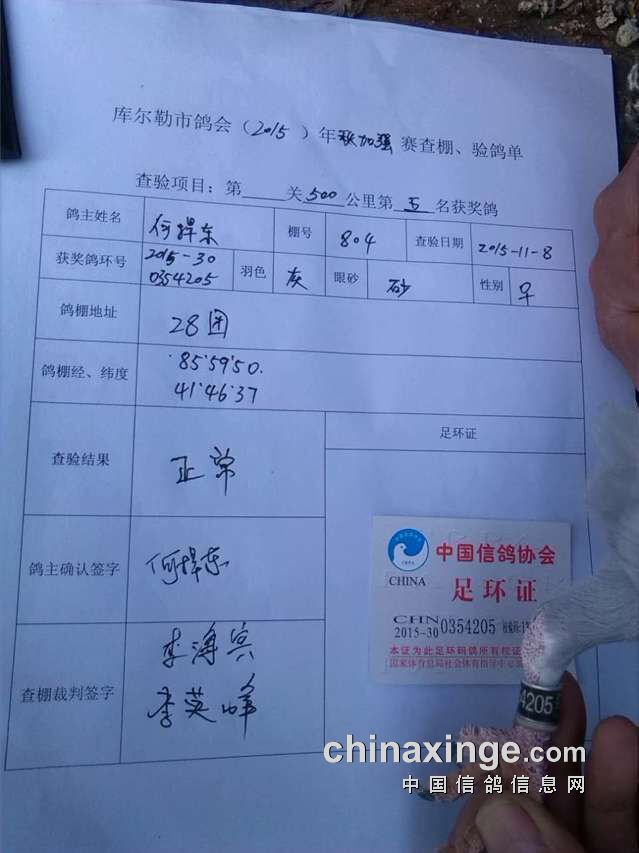 库尔勒市鸽会（2015）年秋加强赛查棚、验鸽单
查验项目：第____关500公里第五名获奖鸽
鸽主姓名 何捍东 棚号 804 查验日期 2015-11-8
获奖鸽环号 2015-30 0354205 羽色 灰 眼砂 砂 性别 ♀
鸽棚地址 28团
鸽棚经、纬度 85°59'50
41°46'37
足环证
查验结果 正常
鸽主确认签字 何捍东
查棚裁判签字 李海宾
李英峰
中国信鸽协会
CHINA 足环证
CHN
2015-30 0354205
本证为此足环码鸽所有权证
国家体育总局社会体育指导中心
4205
chinaxinge.com
中国信鸽信息网